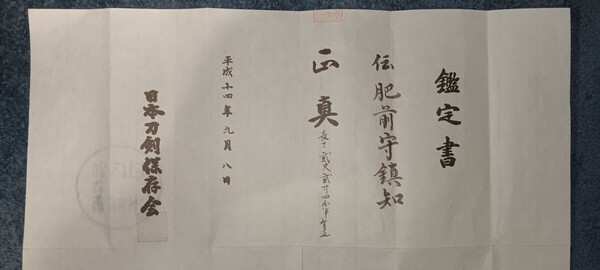 鑑定書
伝 肥前守鎮知
正真
長サ 貳尺貳寸四分半
平成十四年九月八日
日本刀剣保存会